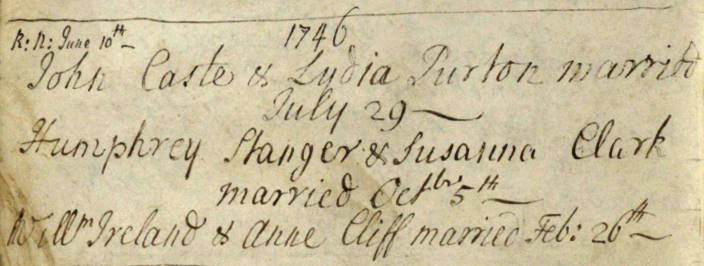 1746
R: R: June 10th
John Caste & Lydia Purton married
July 29
Humphrey Stanger & Susanna Clark
married Octbr 5th
Willm Ireland & Anne Cliff married Feb: 26th